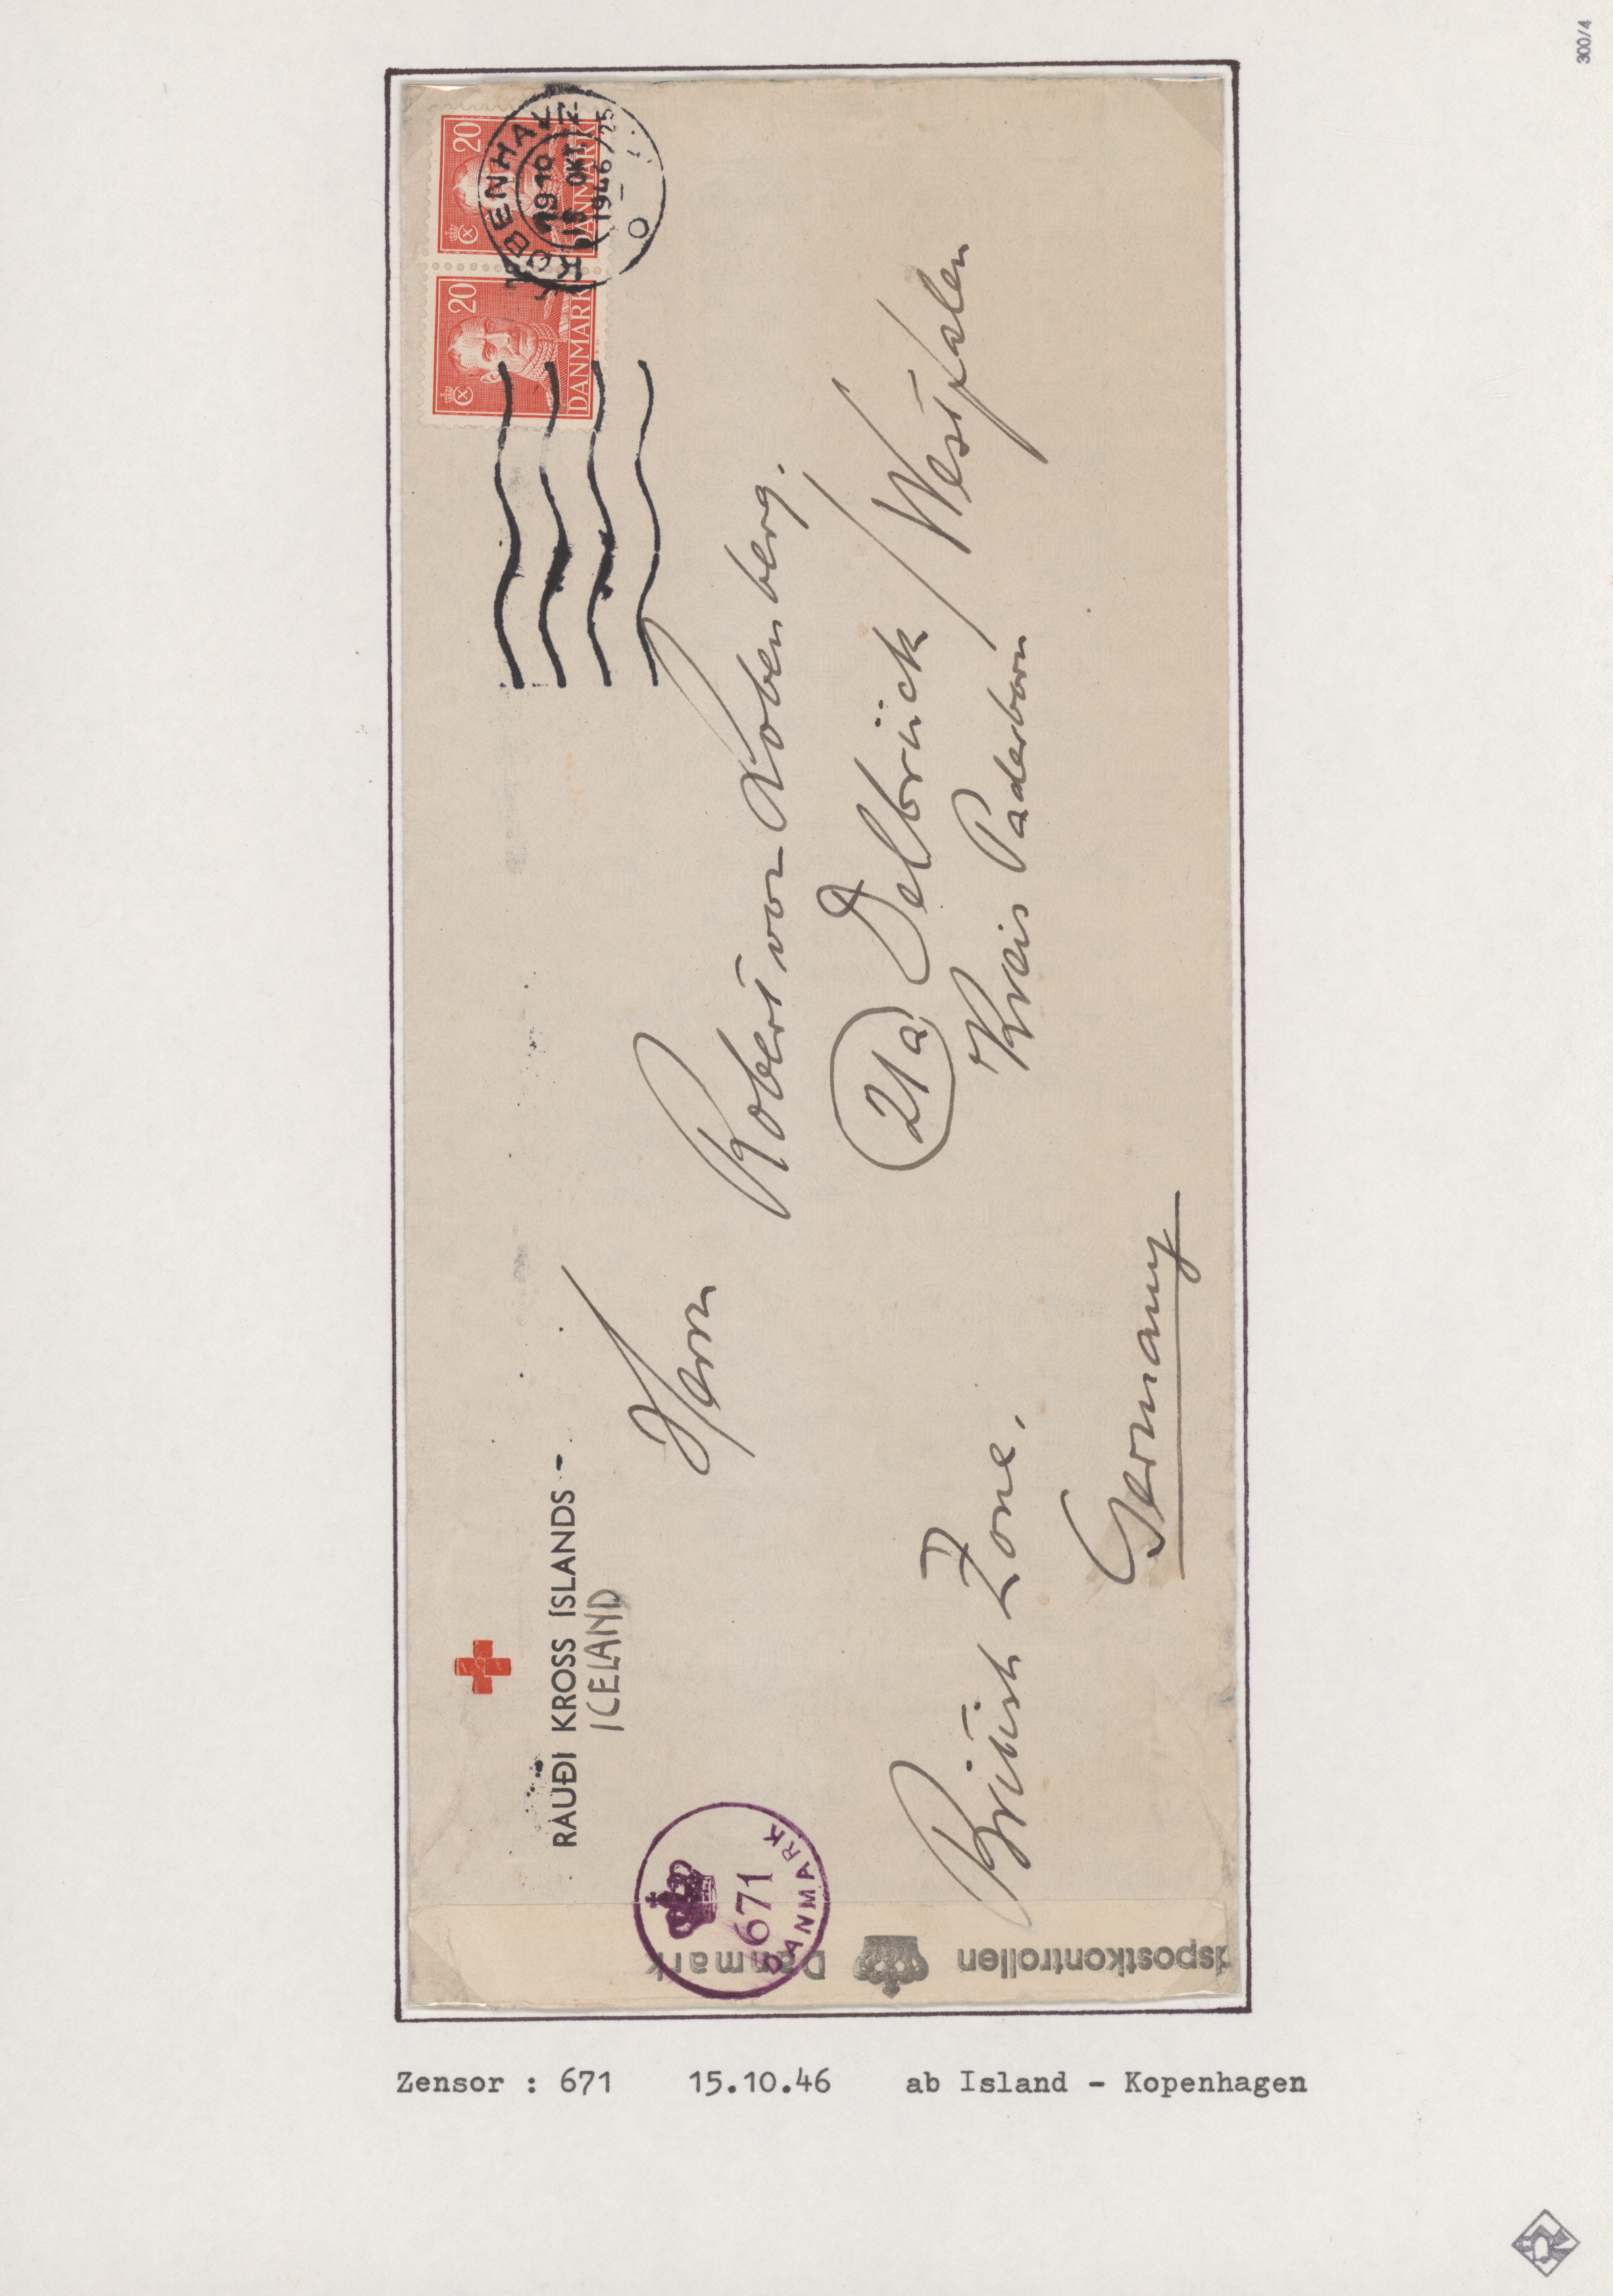 300/4
20
DANMARK
20
DANMARK
KØBENHAVN
19-10
OKT.
1946/25
RAUÐI KROSS ÍSLANDS -
ICELAND
Herrn
Robert von Kobenberg.
21a Delbrück / Westfalen
Kreis Paderborn
British Zone.
Germany
671
DANMARK
dspostkontrollen Danmark
Zensor : 671 15.10.46 ab Island - Kopenhagen